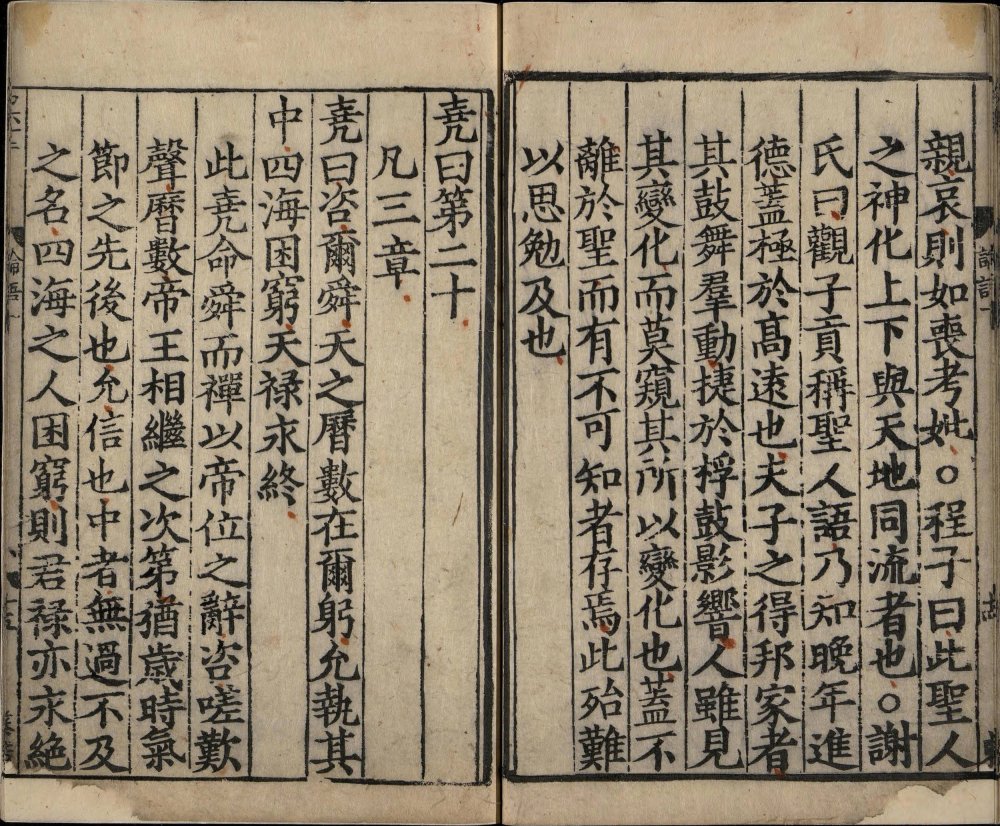 親哀則如喪考妣○程子曰此聖人
之神化上下與天地同流者也○謝
氏曰觀子貢稱聖人語乃知晚年進
德蓋極於高遠也夫子之得邦家者
其鼓舞羣動捷於桴鼓影響人雖見
其變化而莫窺其所以變化也蓋不
離於聖而有不可知者存焉此殆難
以思勉及也
堯曰第二十
凡三章
堯曰咨爾舜天之曆數在爾躬允執其
中四海困窮天祿永終
此堯命舜而禪以帝位之辭咨嗟歎
聲曆數帝王相繼之次第猶歲時氣
節之先後也允信也中者無過不及
之名四海之人困窮則君祿亦永絕